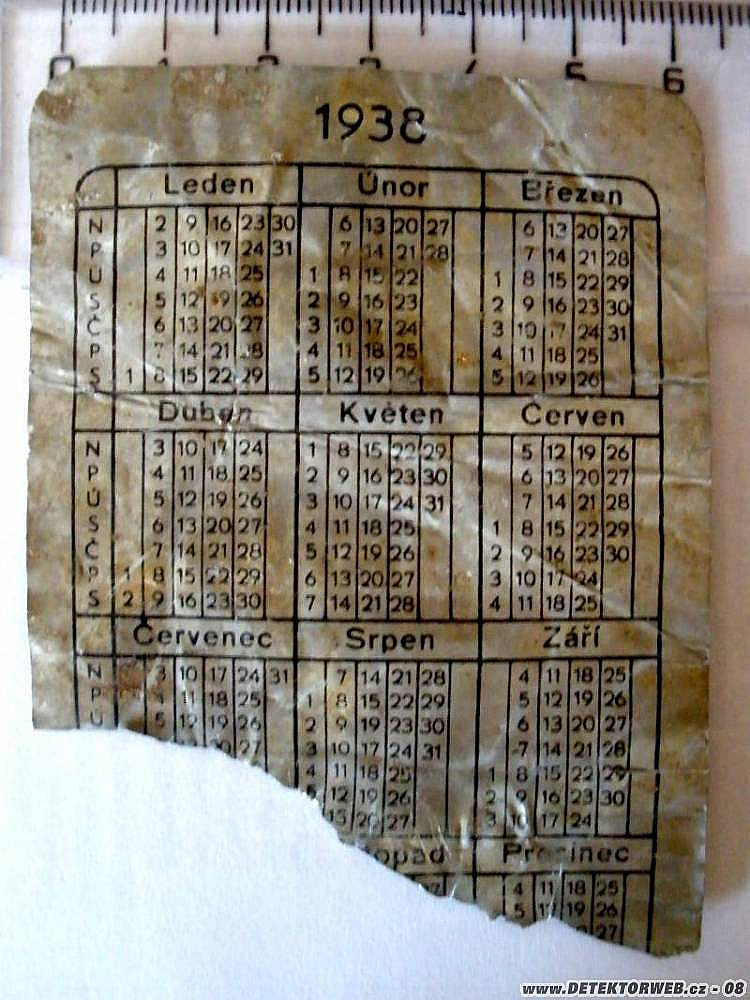 0 1 2 3 4 5 6
1938
Leden Únor Březen
N 2 9 16 23 30 6 13 20 27 6 13 20 27
P 3 10 17 24 31 7 14 21 28 7 14 21 28
Ú 4 11 18 25 1 8 15 22 1 8 15 22 29
S 5 12 19 26 2 9 16 23 2 9 16 23 30
Č 6 13 20 27 3 10 17 24 3 10 17 24 31
P 7 14 21 28 4 11 18 25 4 11 18 25
S 1 8 15 22 29 5 12 19 26 5 12 19 26
Duben Květen Červen
N 3 10 17 24 1 8 15 22 29 5 12 19 26
P 4 11 18 25 2 9 16 23 30 6 13 20 27
Ú 5 12 19 26 3 10 17 24 31 7 14 21 28
S 6 13 20 27 4 11 18 25 1 8 15 22 29
Č 7 14 21 28 5 12 19 26 2 9 16 23 30
P 1 8 15 22 29 6 13 20 27 3 10 17 24
S 2 9 16 23 30 7 14 21 28 4 11 18 25
Červenec Srpen Září
N 3 10 17 24 31 7 14 21 28 4 11 18 25
P 4 11 18 25 1 8 15 22 29 5 12 19 26
Ú 5 12 19 26 2 9 16 23 30 6 13 20 27
27 3 10 17 24 31 7 14 21 28
4 11 18 25 1 8 15 22 29
5 12 19 26 2 9 16 23 30
13 20 27 3 10 17 24
topad Prosinec
27 4 11 18 25
5 12 19 26
27
www.DETEKTORWEB.cz - 08